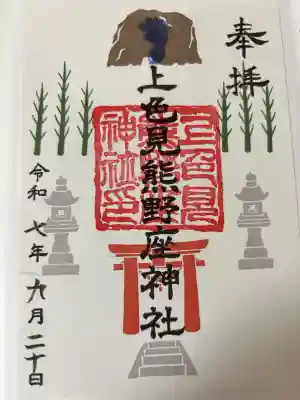 奉拝
上色見熊野座神社
上色見
神社印
令和七年九月二十日